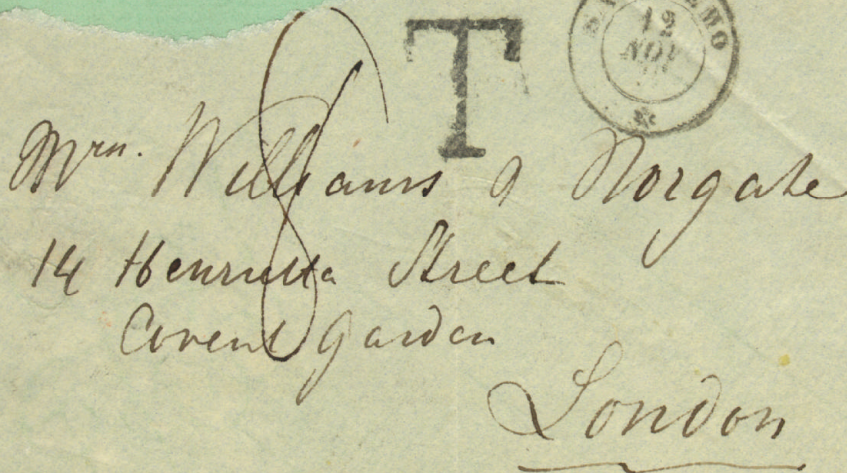 T
12
NOV
Mrn. Williams & Norgate
14 Henrietta Street
Covent Garden
London
8